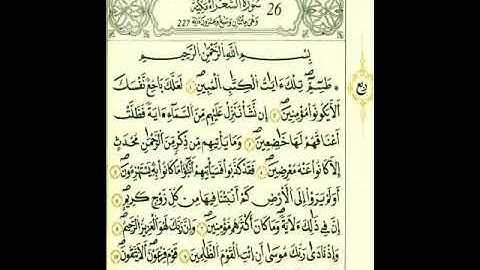 سُورَةُ الشُّعَرَاءِ مَكِّيَّة 26
وَهِيَ مِائَتَانِ وَسَبْعٌ وَعِشْرُونَ ءَايَة 227
بِسْمِ اللَّهِ الرَّحْمَٰنِ الرَّحِيمِ
طَسِٓمِّٓۖ تِلْكَ ءَايَٰتُ الْكِتَٰبِ الْمُبِينِۖ لَعَلَّكَ بَٰخِعٌ نَّفْسَكَ
ربع
أَلَّا يَكُونُواْ مُومِنِينَۖ إِن نَّشَأْ نُنَزِّلْ عَلَيْهِم مِّنَ السَّمَآءِ ءَايَةً فَظَلَّتَ
اَعْنَٰقُهُمْ لَهَا خَٰضِعِينَۖ وَمَا يَاتِيهِم مِّن ذِكْرٍ مِّنَ الرَّحْمَٰنِ مُحْدَثٍ
اِلَّا كَانُواْ عَنْهُ مُعْرِضِينَۖ فَقَدْ كَذَّبُواْ فَسَيَاتِيهِمُۥٓ أَنۢبَٰٓؤُاْ مَا كَانُواْ بِهِۦ يَسْتَهْزِءُونَۖ
أَوَلَمْ يَرَوِاْ اِلَى الْأَرْضِ كَمَ اَنۢبَتْنَا فِيهَا مِن كُلِّ زَوْجٍ كَرِيمٍۖ
اِنَّ فِي ذَٰلِكَ لَأٓيَةًۖ وَمَا كَانَ أَكْثَرُهُم مُّومِنِينَۖ وَإِنَّ رَبَّكَ لَهُوَ الْعَزِيزُ الرَّحِيمُۖ
وَإِذْ نَادَىٰ رَبُّكَ مُوسَىٰٓ أَنِ ايتِ الْقَوْمَ الظَّٰلِمِينَ قَوْمَ فِرْعَوْنَۖ أَلَا يَتَّقُونَۖ